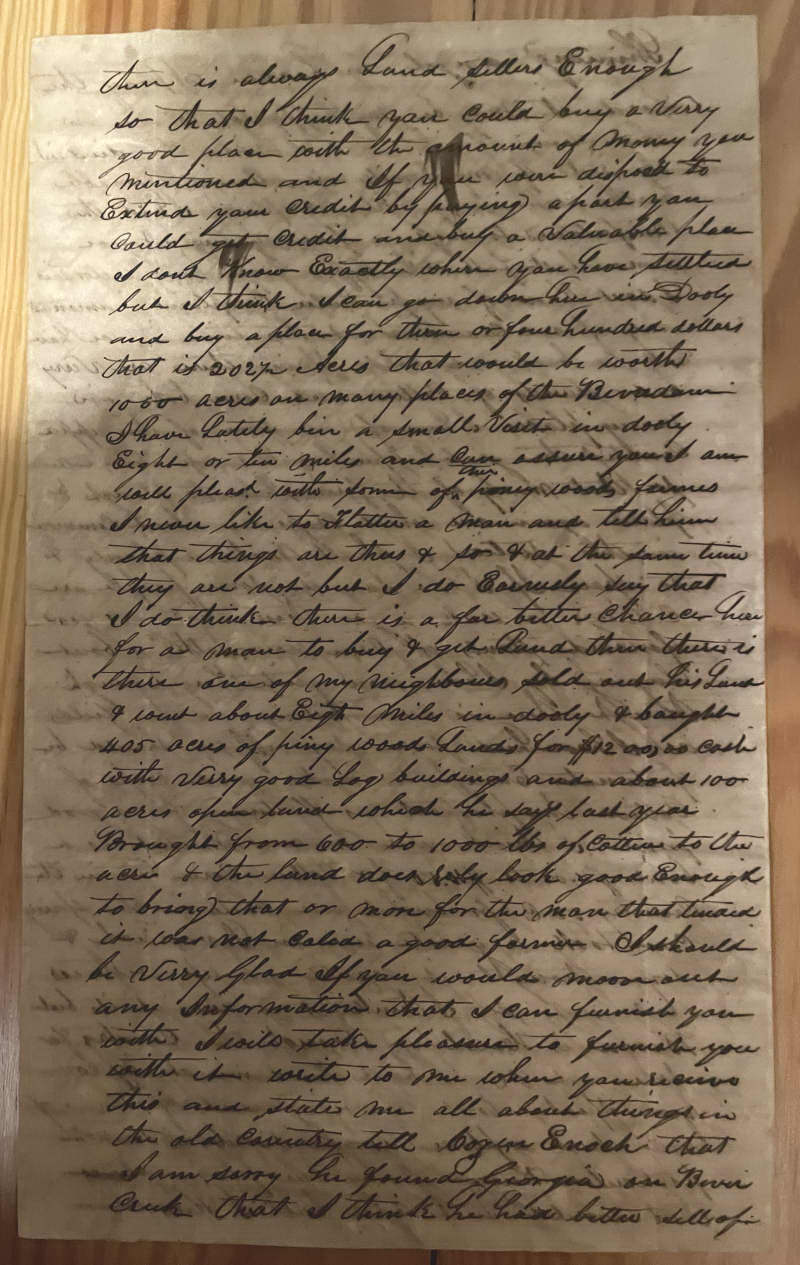 there is always Land sellers Enough
so that I think you could buy a Verry
good place with the amount of money you
mentioned and If you were disposd to
Extend your credit by paying a part you
could get credit and buy a Valuable place
I dont Know Exactly where you have settled
but I think I can go down here in Dooly
and buy a place for three or four hundred dollars
that is 202½ Acres that would be worth
1000 acres on many places of the Beverdam
I have Lately bin a small Visit in dooly
Eight or ten miles and Can assure you I am
well pleasd with some of the piney woods farmes
I never like to Flatter a man and tell him
that things are thus & so & at the same time
they are not but I do Earnesly say that
I do think there is a far better Chance here
for a man to buy & get Land then there is
there one of my neighbours sold out his Land
& went about Eight miles in dooly & bought
405 acres of piny woods Lands for $1200.00 cash
with Verry good Log buildings and about 100
acres open land which he says last year
Brought from 600 to 1000 lbs of Cotten to the
acre & the land does look good Enough
to bring that or more for the man that tended
it was not Caled a good farmer I should
be Verry Glad If you would moove out
any Information that I can furnish you
with I will take pleasure to furnish you
with it write to me when you receive
this and state me all about things in
the old Country tell Cozen Enoch that
I am sorry he found Georgia on Bever
Creek that I think he had better sell of